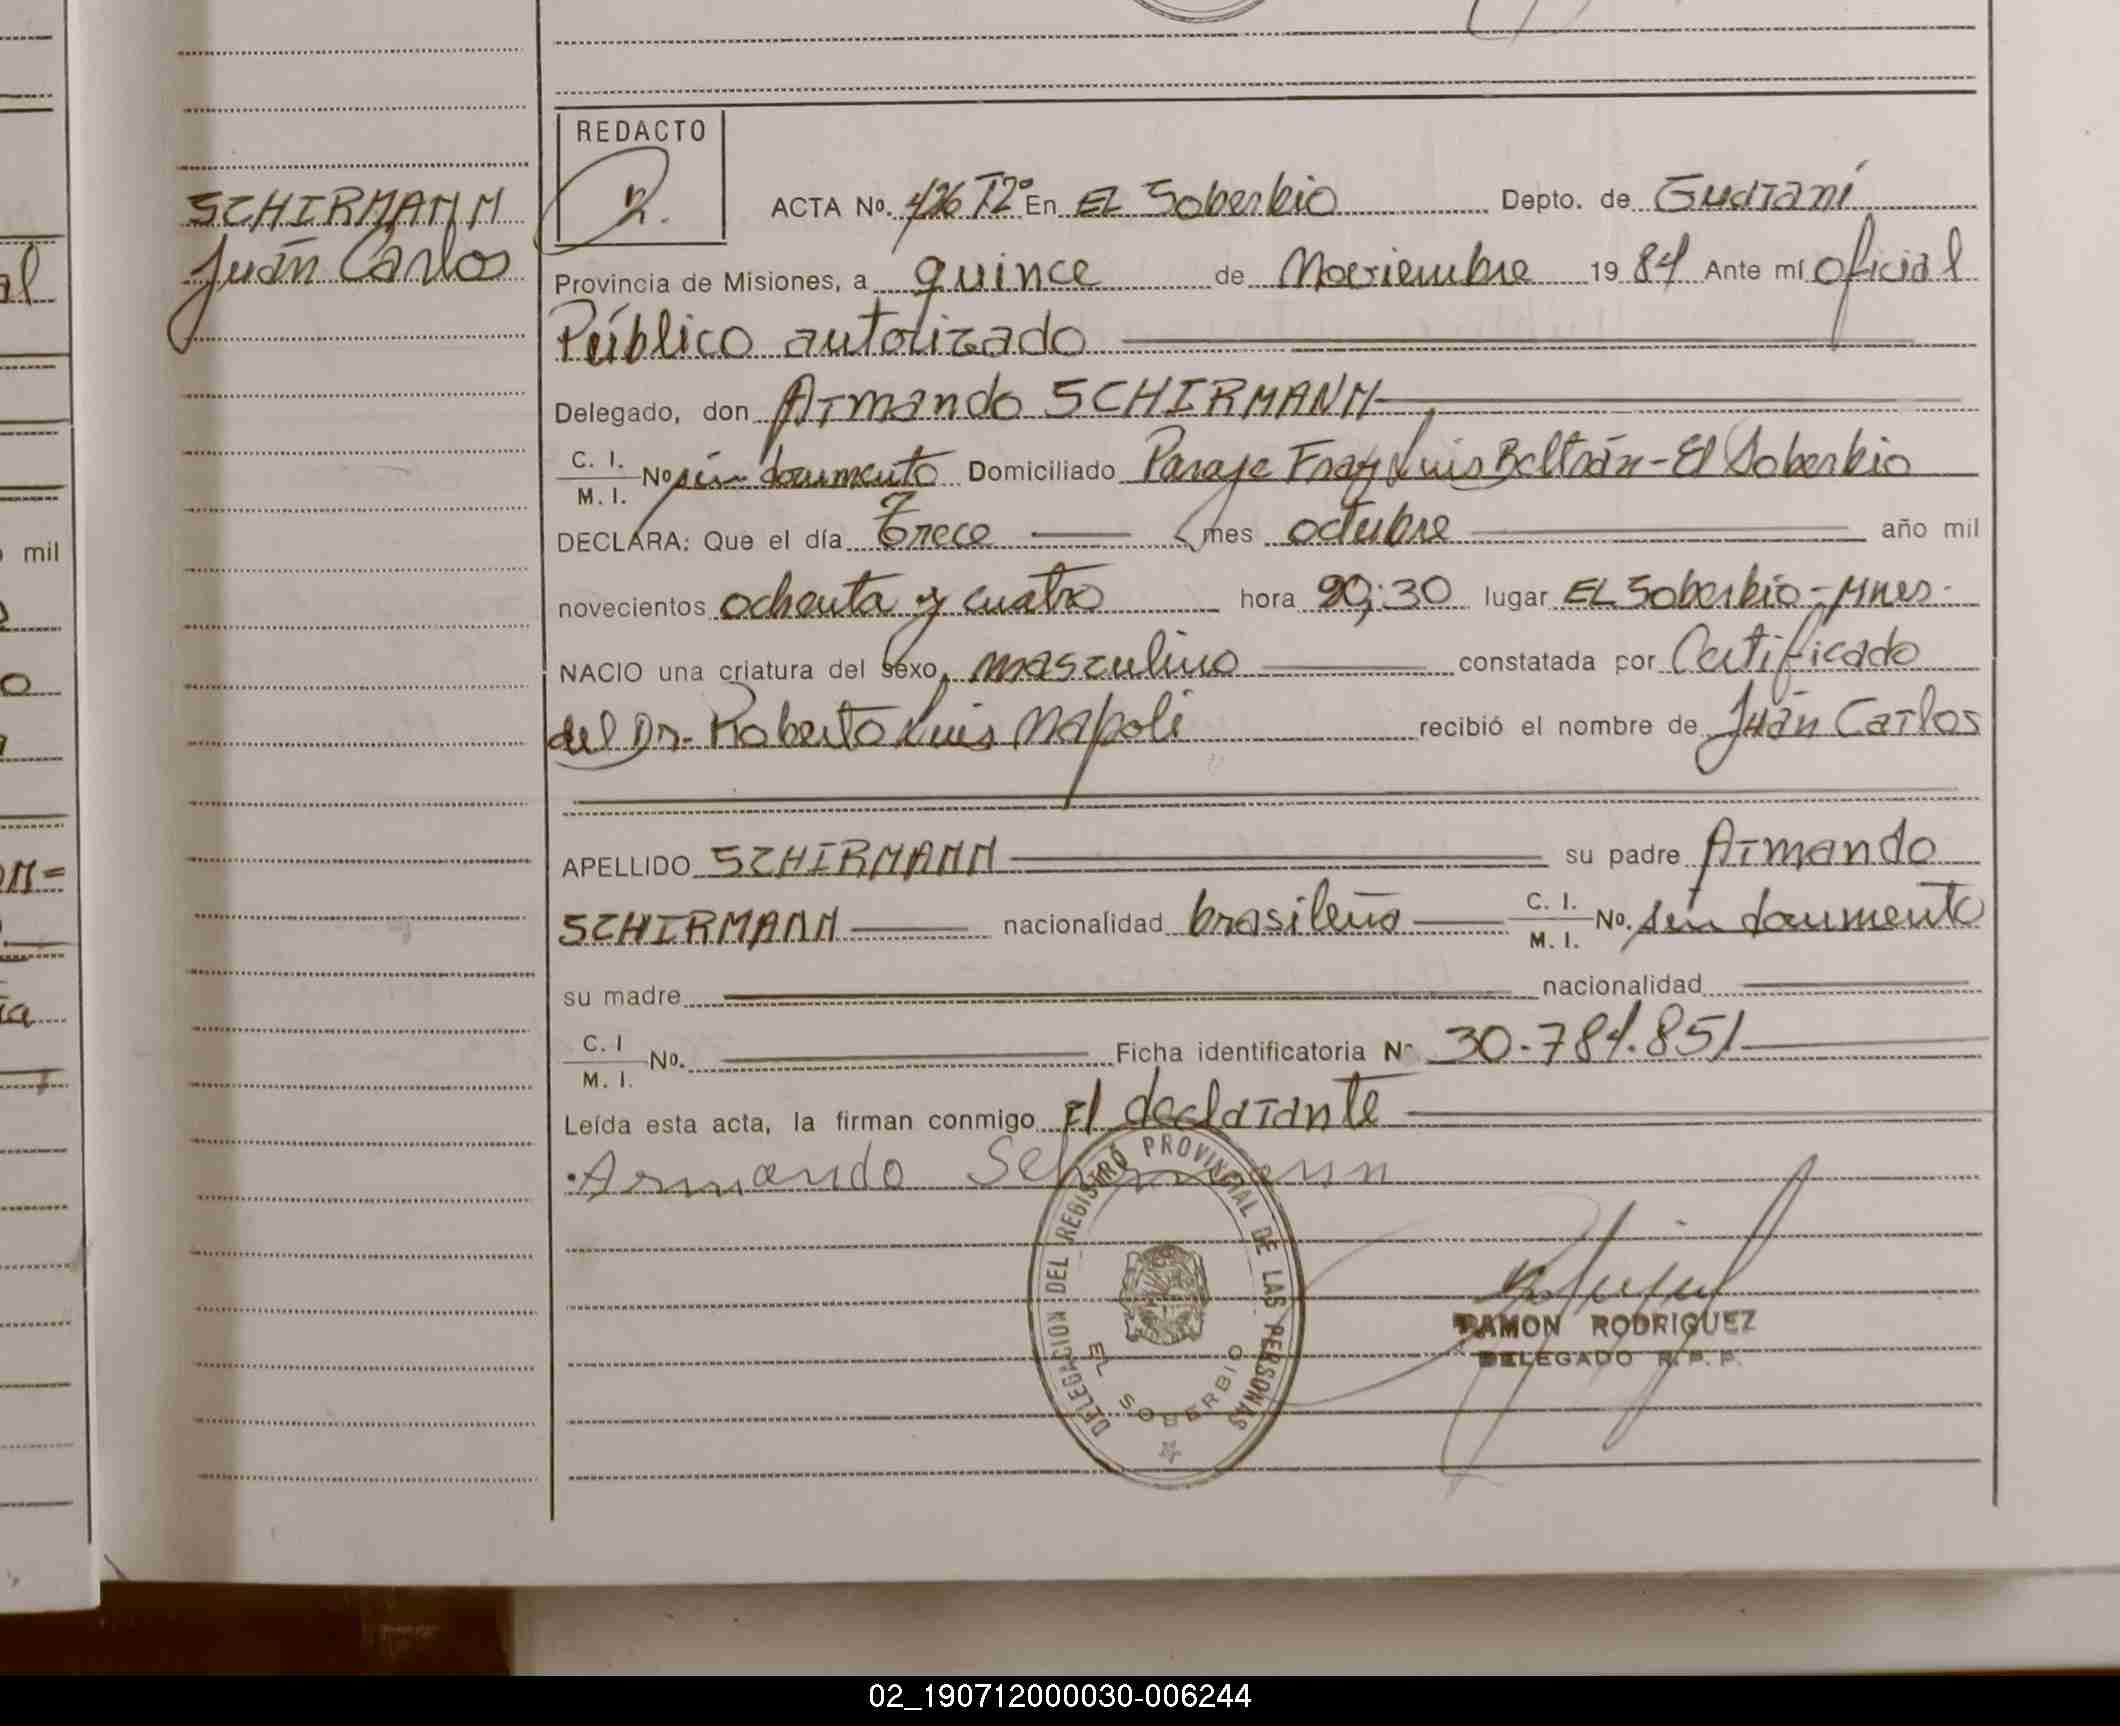 REDACTO
SCHIRMANN
Juan Carlos
ACTA No. 426 Tº2 En EL Soberbio Depto. de Guaraní
Provincia de Misiones, a quince de Noviembre 1984 Ante mí oficial
Público autorizado
Delegado, don Armando SCHIRMANN
C. I. M. I. No sin documento Domiciliado Paraje Fray Luis Beltrán - El Soberbio
DECLARA: Que el día Trece mes octubre año mil
novecientos ochenta y cuatro hora 20:30 lugar EL Soberbio - Mnes.
NACIO una criatura del sexo masculino constatada por Certificado
del Dr. Roberto Luis Napoli recibió el nombre de Juan Carlos
APELLIDO SCHIRMANN su padre Armando
SCHIRMANN nacionalidad brasileña C. I. M. I. No. sin documento
su madre nacionalidad
C. I M. I. No. Ficha identificatoria Nº 30.784.851
Leída esta acta, la firman conmigo El declarante
Armando Schirmann
DELEGACION DEL REGISTRO PROVINCIAL DE LAS PERSONAS
EL SOBERBIO
RAMON RODRIGUEZ
DELEGADO R. P. P.
mil
02_190712000030-006244